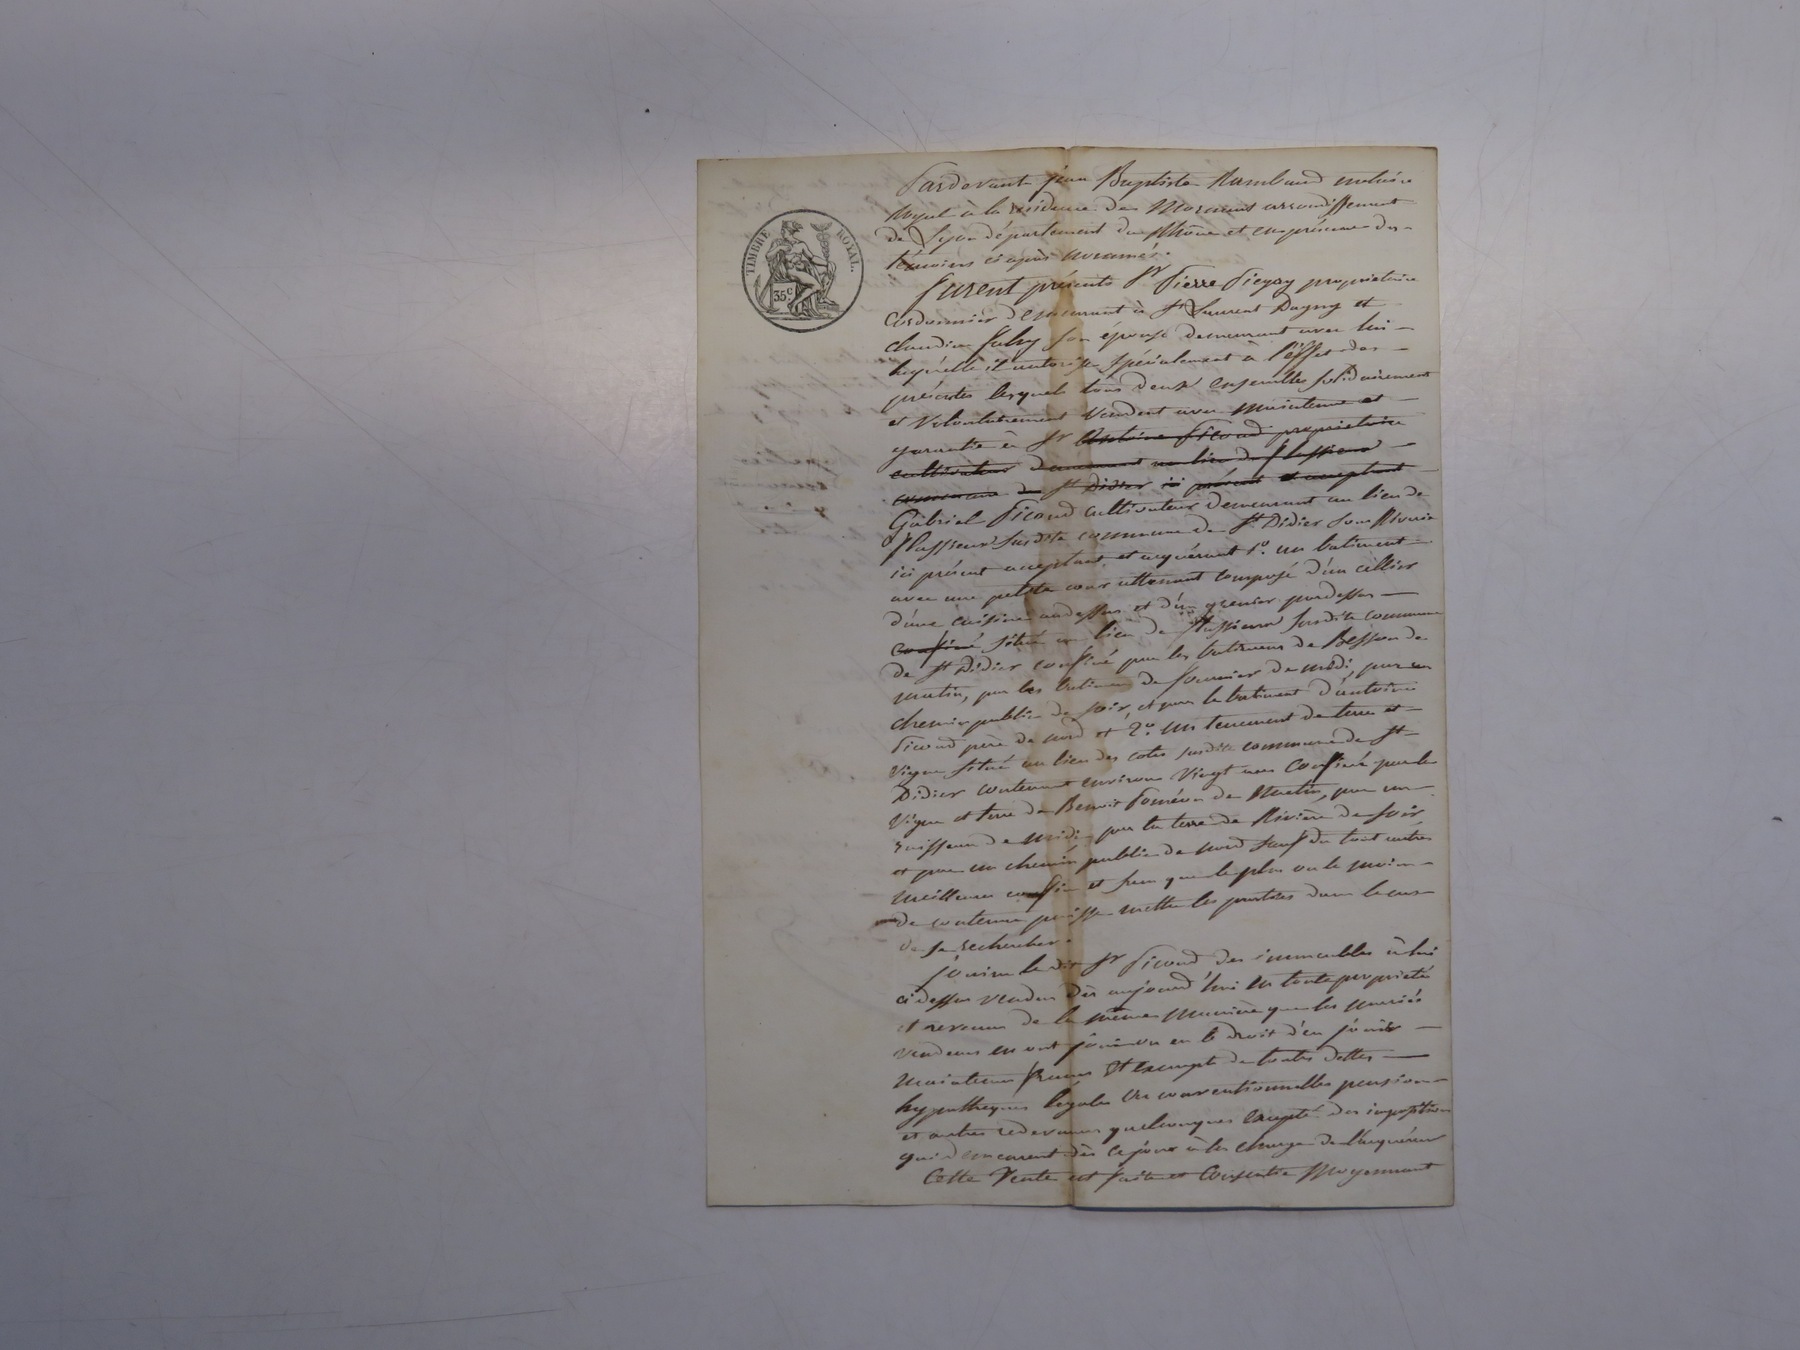 TIMBRE ROYAL.
35c.
Pardevant jean Baptiste Rambaud notaire
royal à la résidence de Mornant arrondissement
de Lyon département du Rhône et en présence des
témoins ci après nommés.
Furent présents Sr Pierre Piegay propriétaire
cordonnier demeurant à St Laurent Dagny et
claudine son épouse demeurant avec lui
laquelle il autorise spécialement à l'effet des
présentes lesquels tous deux ensembles solidairement
et volontairement vendent avec maintenue et
garantie à Sr Antoine Picoud propriétaire
cultivateur demeurant au lieu de Plassieux
commune de St Didier ici présent et acceptant
Gabriel Picoud cultivateur demeurant au lieu de
Plassieux susdite commune de St Didier sous Riverie
ici présent acceptant et acquérant 1o. un batiment
avec une petite cour attenant composé d'un cellier
d'une cuisine audessus et d'un grenier pardessus
confiné situé au lieu de Plassieux susdite commune
de St Didier confiné par les batiments de Besson de
matin, par les batiments de fournier de midi, par un
chemin public de soir, et par le batiment d'antoine
Picoud père de nord et 2o. un tenement de terre et
vigne situé au lieu des cotes susdite commune de St
Didier contenant environ vingt ares confiné par la
vigne et terre de Benoit de Matin, par un
ruisseau de midi par la terre de Rivière de soir
et par un chemin public de nord sauf du tout autres
meilleurs confins et sans que le plus ou le moins
de contenue puisse mettre les parties dans le cas
de se rechercher.
Jouira le dit Sr Picoud des immeubles à lui
cidessus vendus dès aujourd'hui en toute propriété
et revenus de la même manière que les mariés
vendeurs en ont joui ou eu le droit d'en jouir
maintenus francs et exempts de toutes dettes
hypothèques légales ou conventionnelles pensions
et autres redevances quelconques excepté des impositions
qui demeurent dès ce jour à la charge de l'acquéreur
Cette Vente est faite et Consentie Moyennant